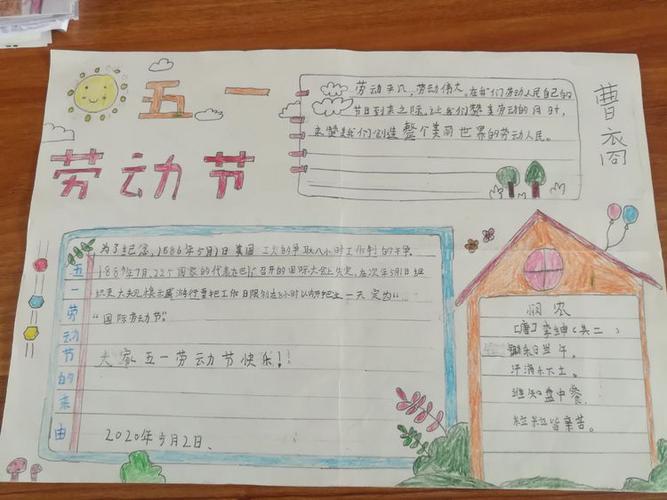 五一
劳动节
劳动光几,劳动伟大。在我们劳动人民自己的
节日到来之际,让我们赞美劳动的同时,
来赞美我们创造整个美丽世界的劳动人民。
曹衣
五一劳动节的来由
为了纪念,1886年5月1日美国工人的争取八小时工作制的斗争。
1889年7月,22个国家的代表在巴召开的国际大会上决定,在次年5月1日组
织
一天定为“
“国际劳动节”
大家五一劳动节快乐!!
2020年5月2日、
悯农
[唐]李绅(其二)
锄禾日当午。
汗滴禾下土。
谁知盘中餐。
粒粒皆辛苦。